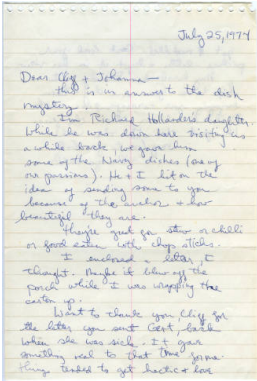 July 25, 1974
Dear Cliff + Johanna—
This is in answer to the dish
mystery.
I'm Richard Hollander's daughter.
While he was down here visiting us
a while back, we gave him
some of the Navy dishes (one of
our passions). He + I hit on the
idea of sending some to you
because of the anchor + how
beautiful they are.
They're great for stew or chilli
or good eaten with chop sticks.
I enclosed a letter, I
thought. Maybe it blew off the
porch while I was wrapping the
carton up.
Want to thank you, Cliff for
the letter you sent Gert, back
when she was sick. It gave
something real to that time for me.
Things tended to get hectic + love